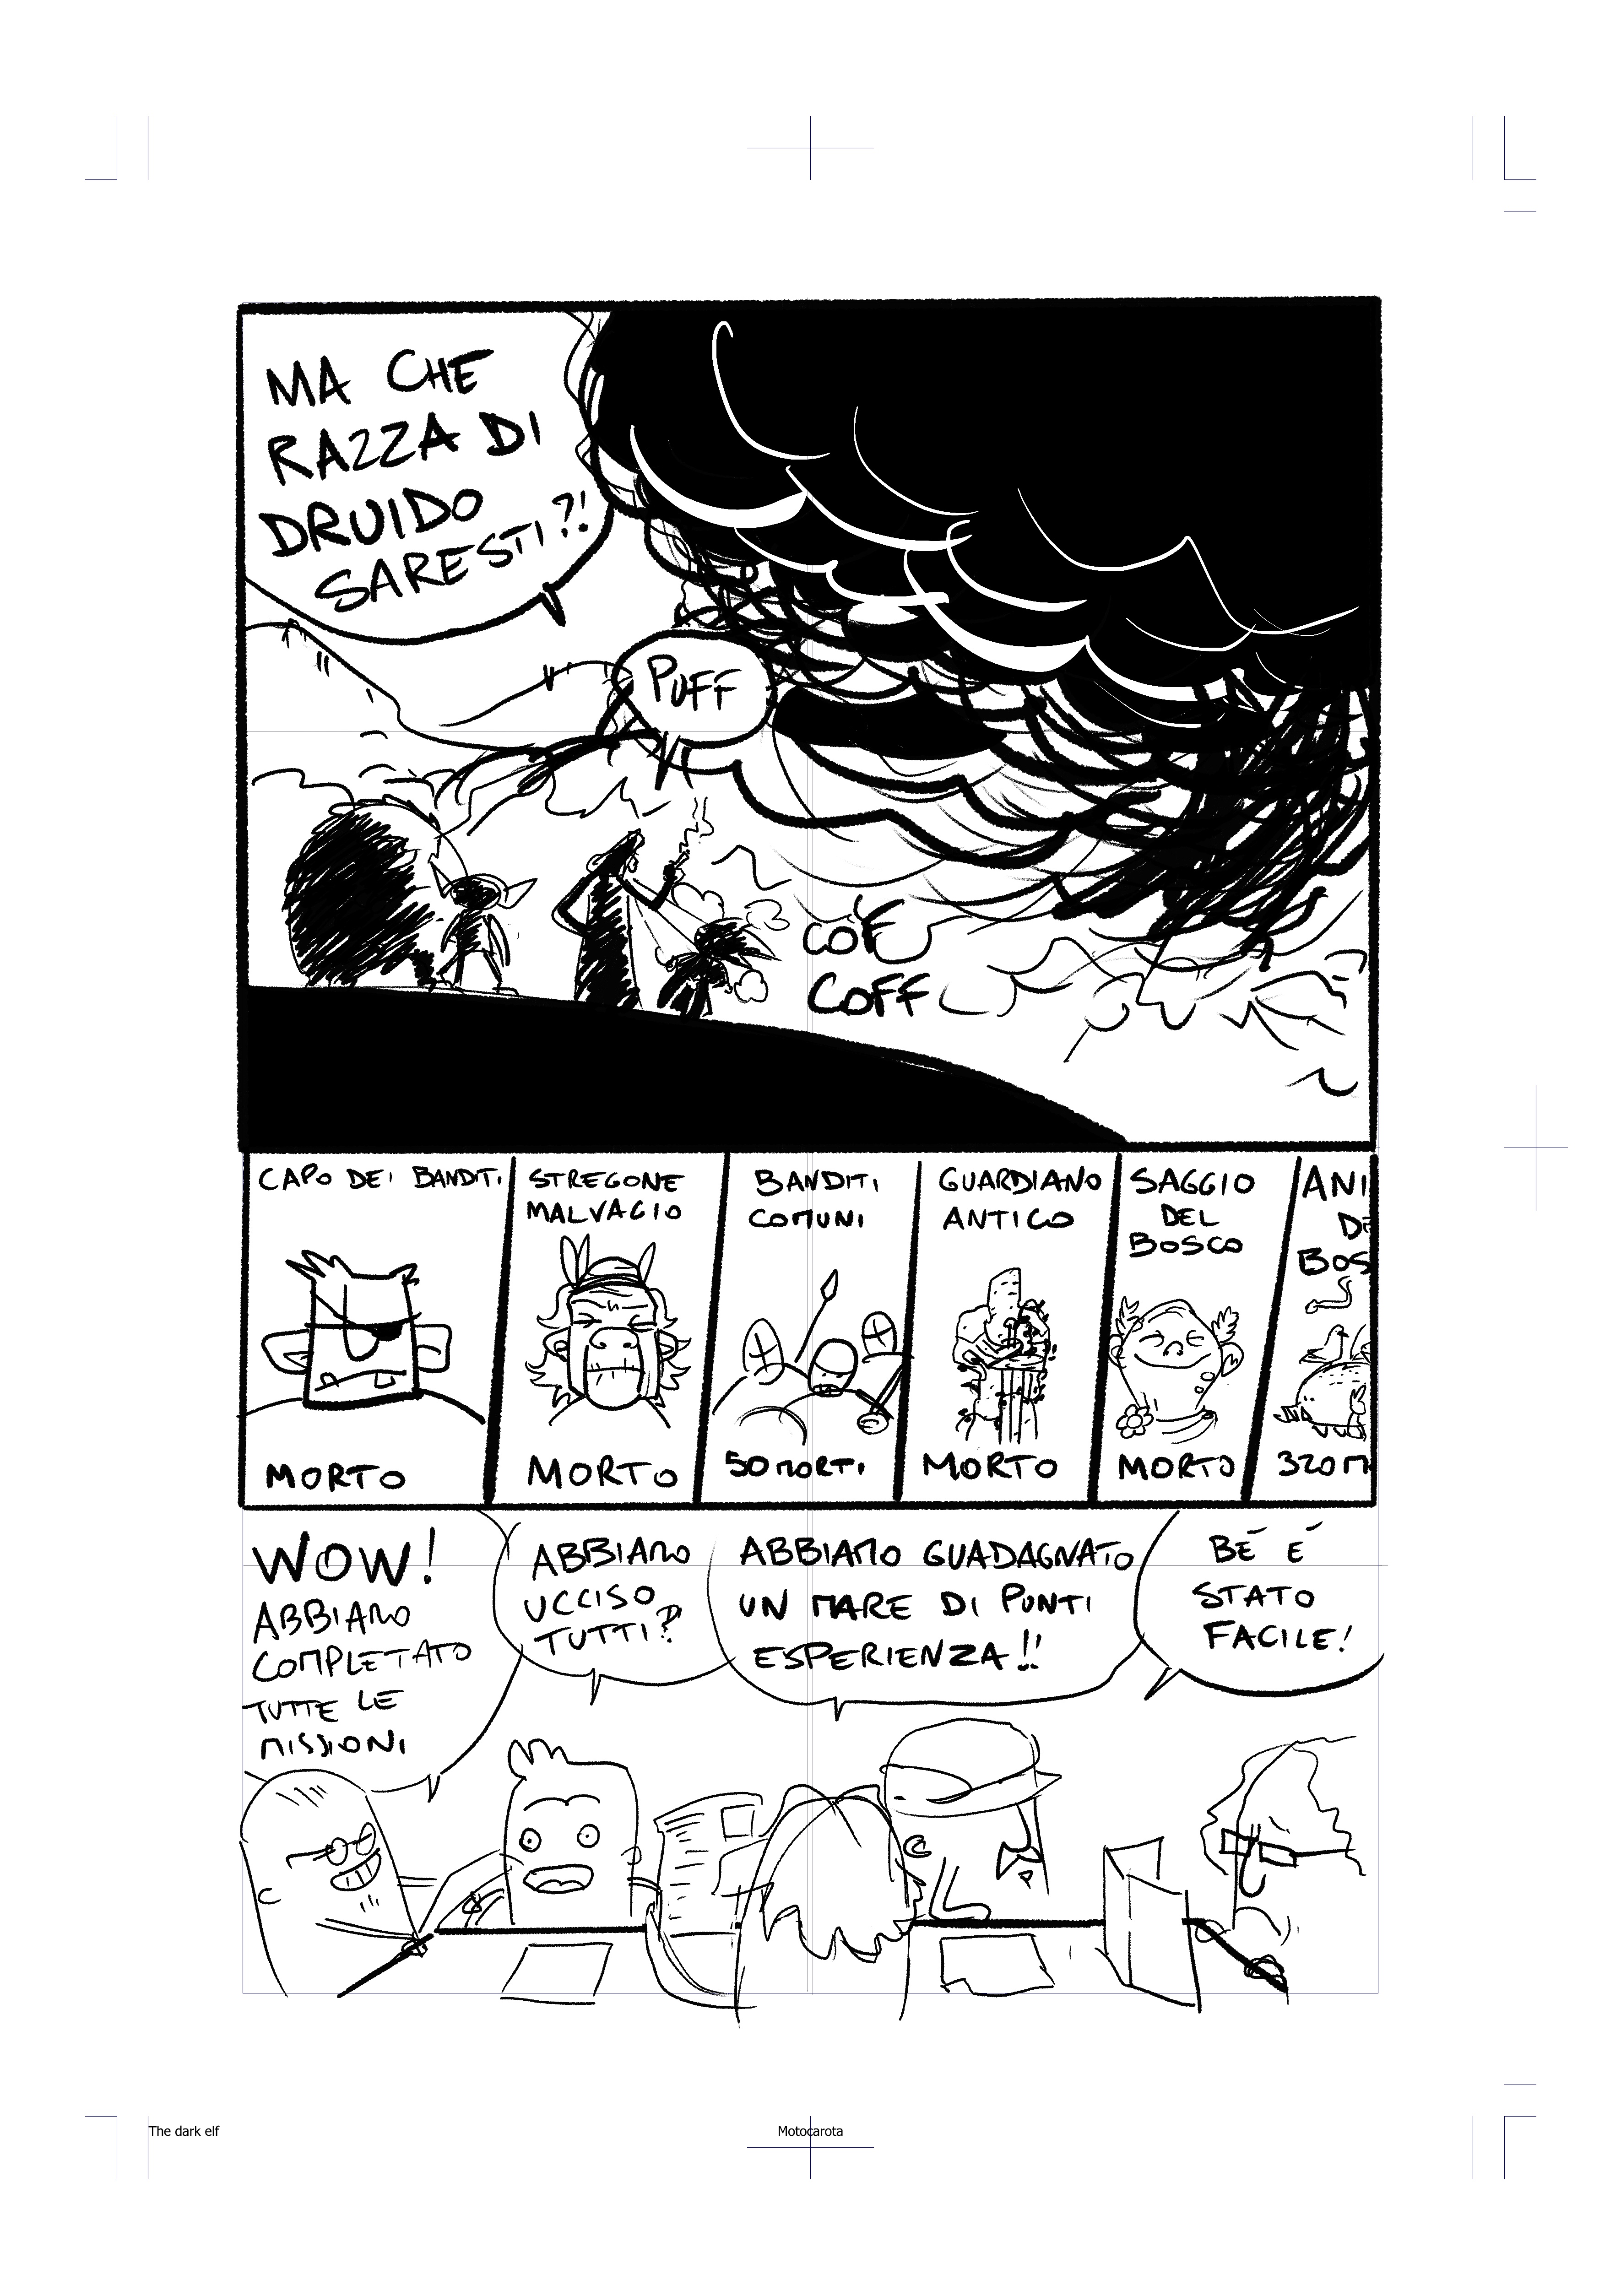 MA CHE
RAZZA DI
DRUIDO
SARESTI?!
PUFF
COF
COFF
CAPO DEI BANDITI
MORTO
STREGONE
MALVAGIO
MORTO
BANDITI
COMUNI
50 MORTI
GUARDIANO
ANTICO
MORTO
SAGGIO
DEL
BOSCO
MORTO
ANI
DE
BOS
320 M
WOW!
ABBIAMO
COMPLETATO
TUTTE LE
MISSIONI
ABBIAMO
UCCISO
TUTTI?
ABBIAMO GUADAGNATO
UN MARE DI PUNTI
ESPERIENZA!!
BÉ É
STATO
FACILE!
The dark elf
Motocarota